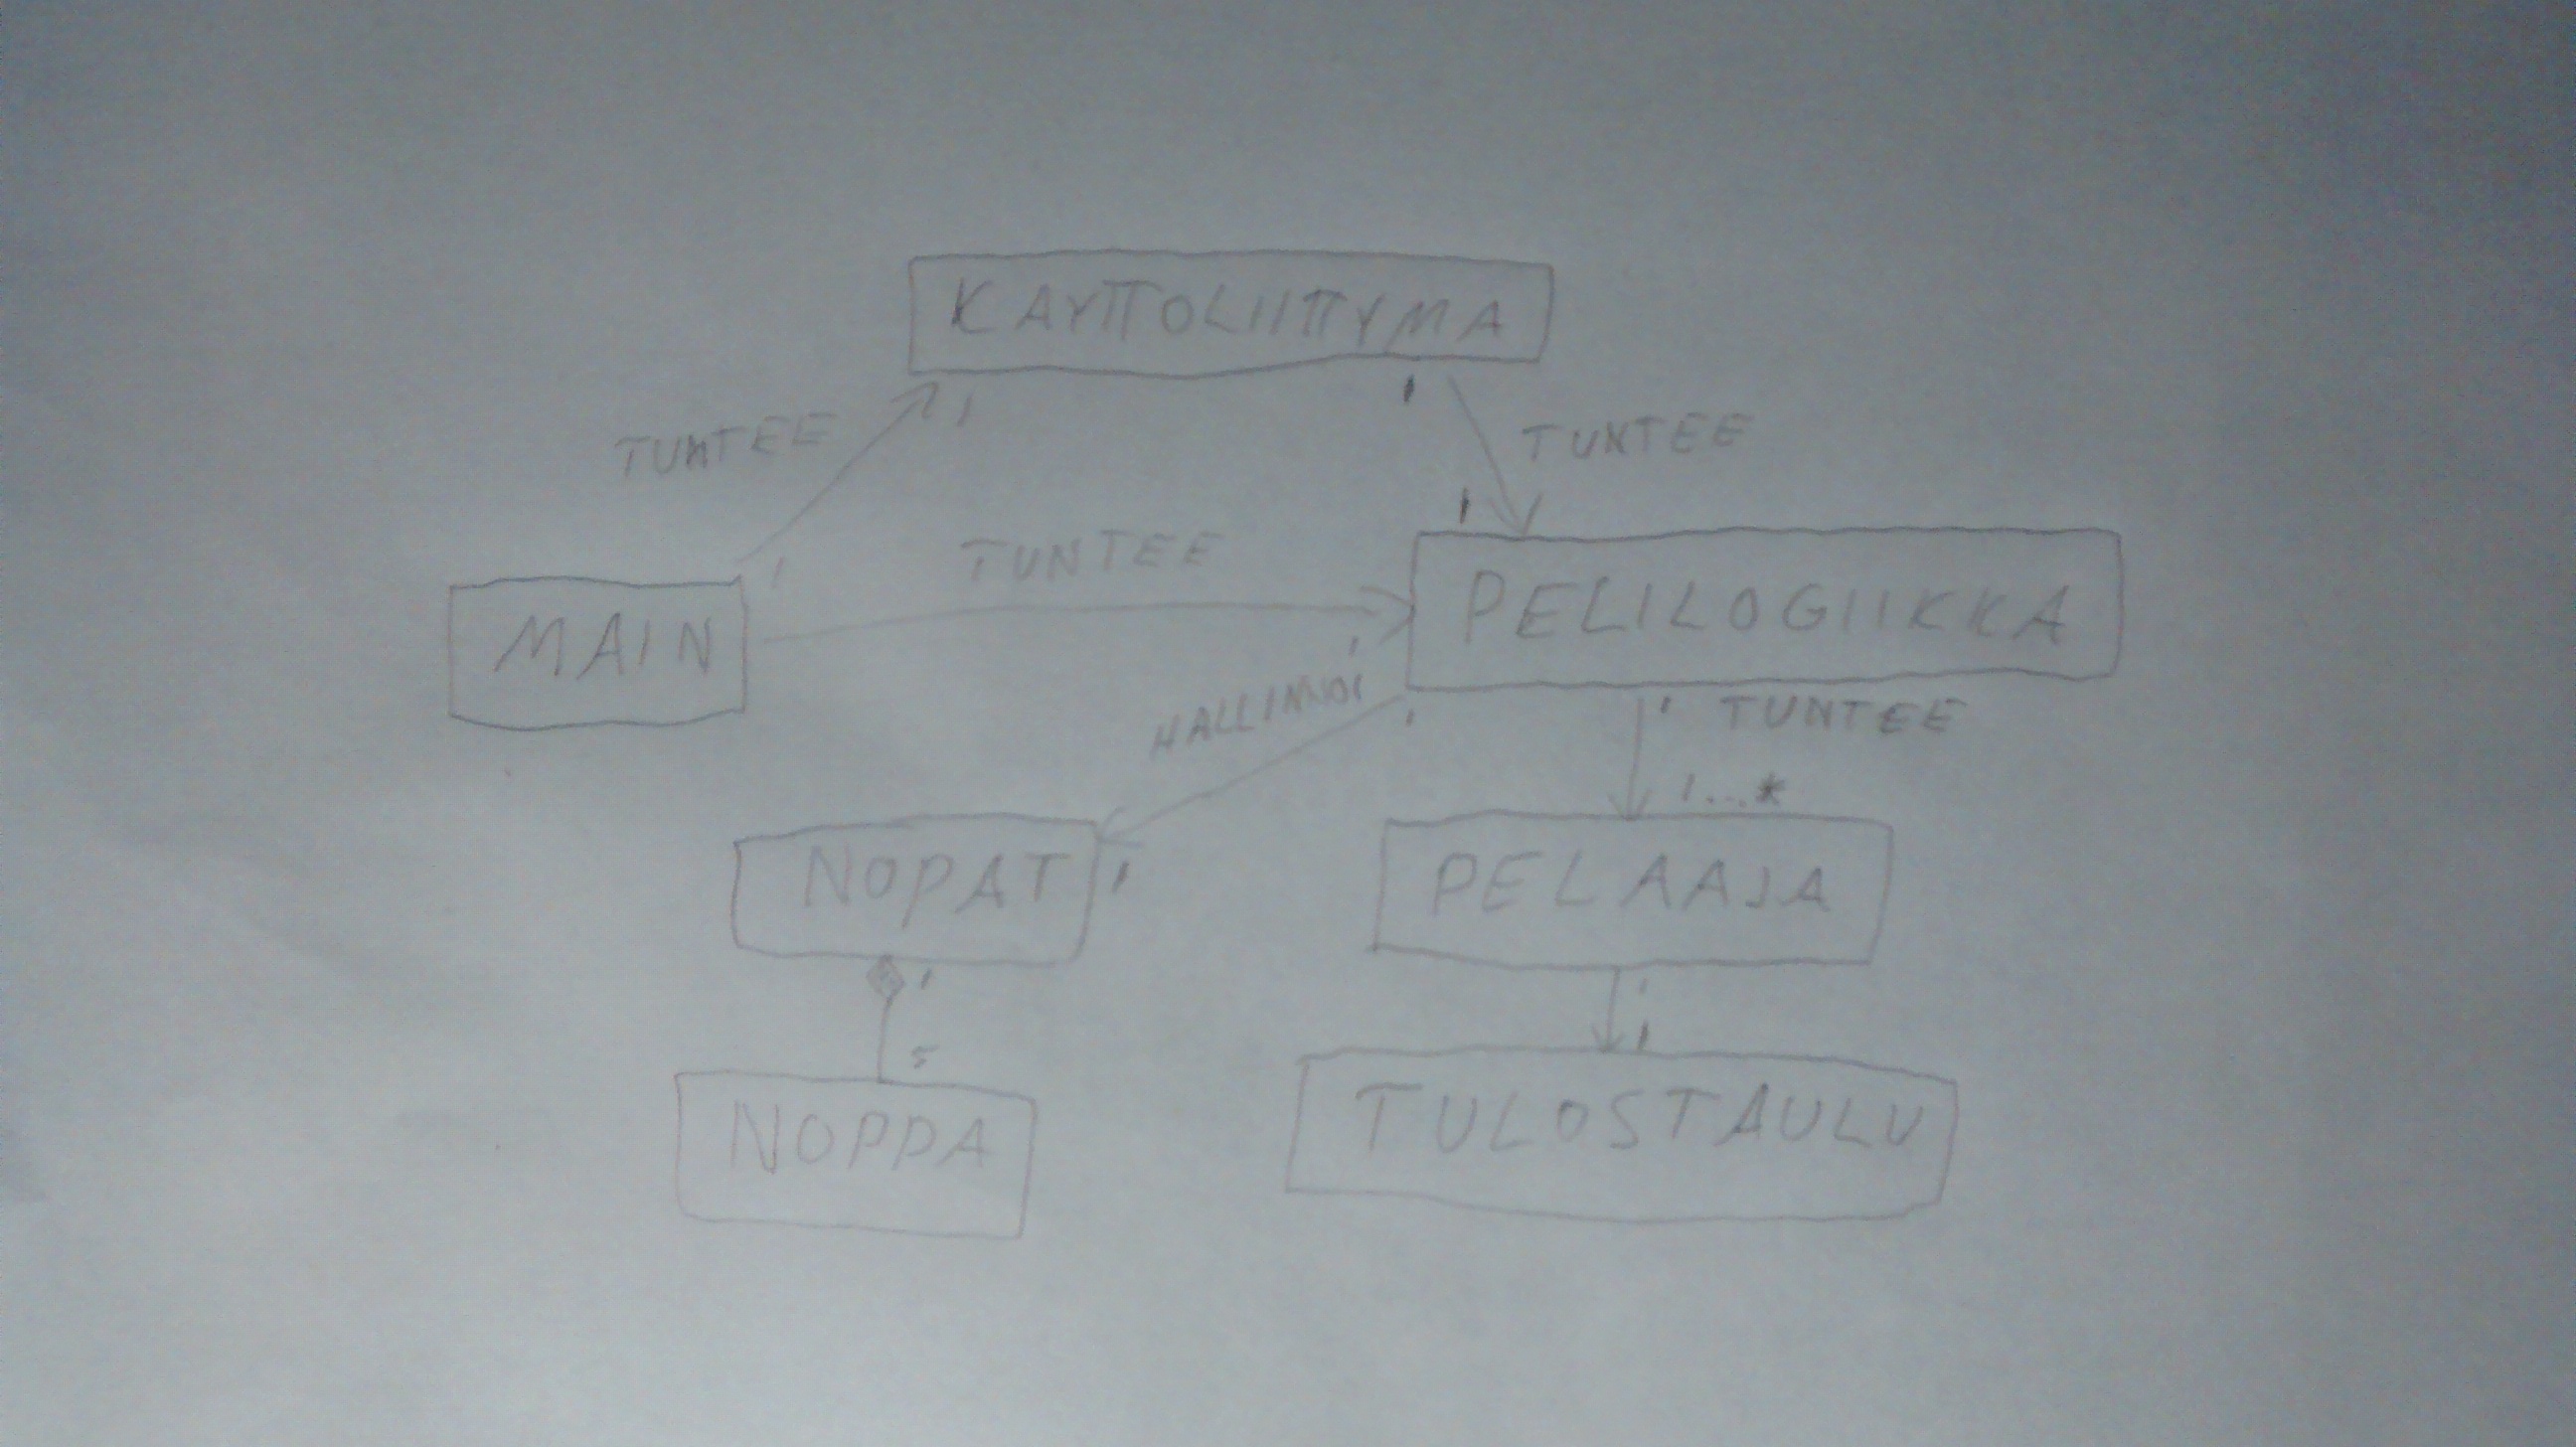 KAYTTOLIITTYMA
1
1
TUNTEE
TUNTEE
1
TUNTEE
1
MAIN
PELILOGIIKKA
1
HALLINNOI
1
1
TUNTEE
1...*
NOPAT
1
PELAAJA
1
1
5
1
NOPPA
TULOSTAULU